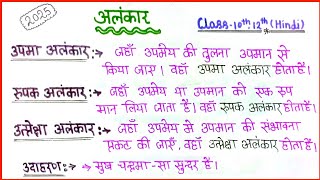 2025
अलंकार
Class-10th,12th (Hindi)
उपमा अलंकार:- जहाँ उपमेय की तुलना उपमान से
किया जाए। वहाँ उपमा अलंकार होता हैं।
रूपक अलंकार:- जहाँ उपमेय या उपमान को एक रूप
मान लिया जाता हैं। वहाँ रूपक अलंकार होता हैं।
उत्प्रेक्षा अलंकार:- जहाँ उपमेय में उपमान की संभावना
प्रकट की जाएँ, वहाँ उत्प्रेक्षा अलंकार होता हैं।
उदाहरण:- मुख चन्द्रमा-सा सुन्दर हैं।